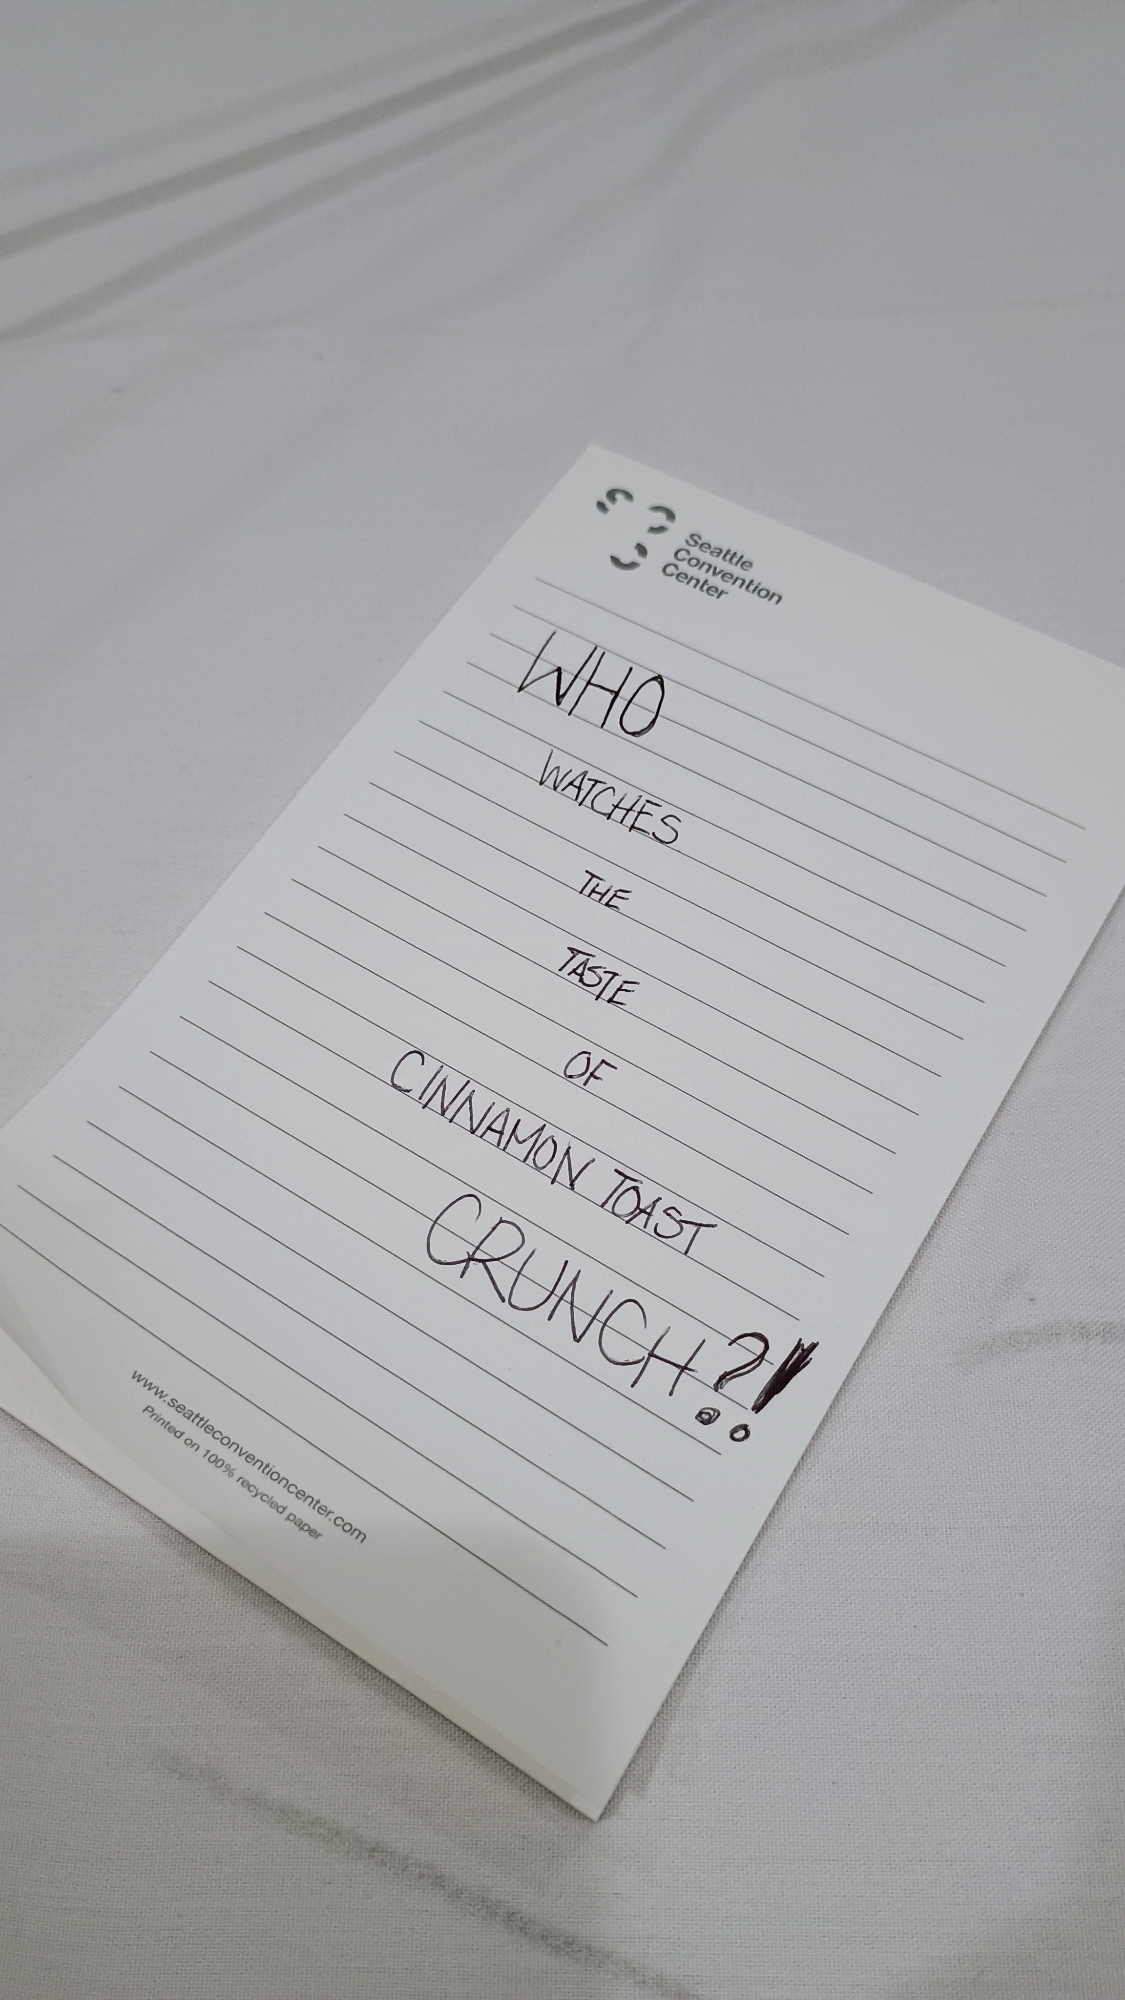 Seattle
Convention
Center
WHO
WATCHES
THE
TASTE
OF
CINNAMON TOAST
CRUNCH?!
www.seattleconventioncenter.com
Printed on 100% recycled paper